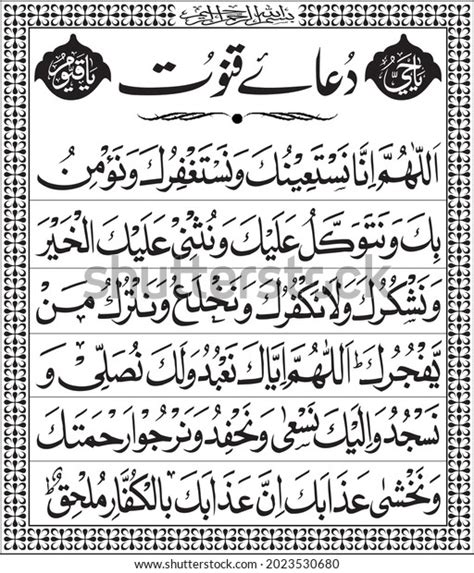 بسم الله الرحمن الرحيم
يا حي
دعائے قنوت
يا قيوم
اَللّٰهُمَّ اِنَّا نَسْتَعِيْنُكَ وَنَسْتَغْفِرُكَ وَنُؤْمِنُ
بِكَ وَنَتَوَكَّلُ عَلَيْكَ وَنُثْنِىْ عَلَيْكَ الْخَيْرَ
وَنَشْكُرُكَ وَلَا نَكْفُرُكَ وَنَخْلَعُ وَنَتْرُكُ مَنْ
يَّفْجُرُكَ ؕ اَللّٰهُمَّ اِيَّاكَ نَعْبُدُ وَلَكَ نُصَلِّىْ وَ
نَسْجُدُ وَاِلَيْكَ نَسْعٰى وَنَحْفِدُ وَنَرْجُوْا رَحْمَتَكَ
وَنَخْشٰى عَذَابَكَ اِنَّ عَذَابَكَ بِالْكُفَّارِ مُلْحِقٌ ؕ
shutterstock
shutterstock.com · 2023530680